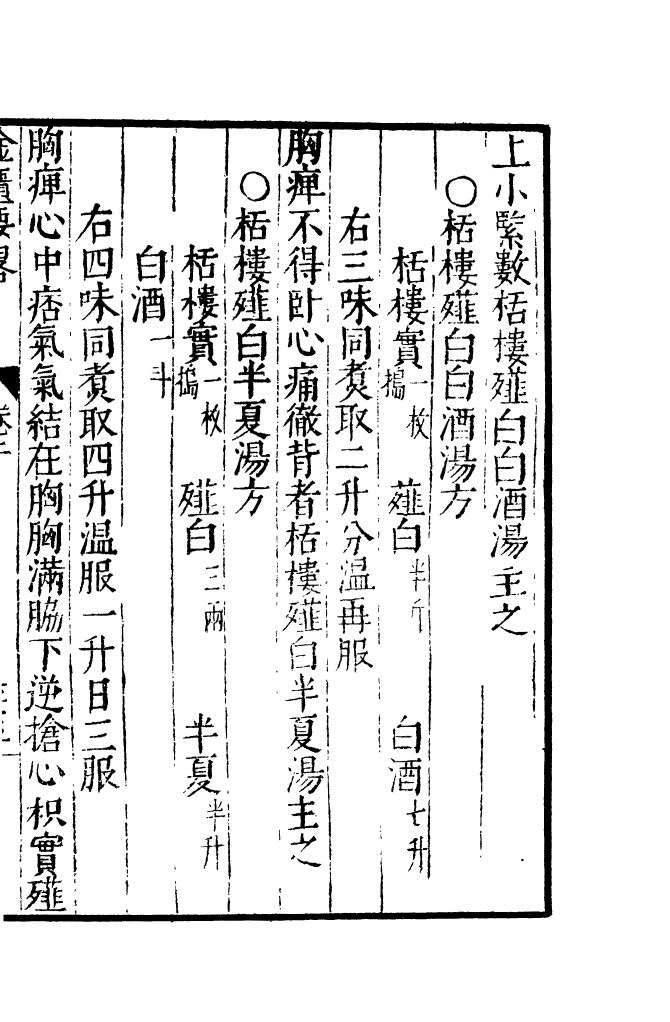 上小緊數栝樓薤白白酒湯主之
○栝樓薤白白酒湯方
栝樓實一枚搗 薤白半斤 白酒七升
右三味同煑取二升分溫再服
胸痺不得臥心痛徹背者栝樓薤白半夏湯主之
○栝樓薤白半夏湯方
栝樓實一枚搗 薤白三兩 半夏半升
白酒一斗
右四味同煑取四升溫服一升日三服
胸痺心中痞氣氣結在胸胸滿脇下逆搶心枳實薤
金匱要畧